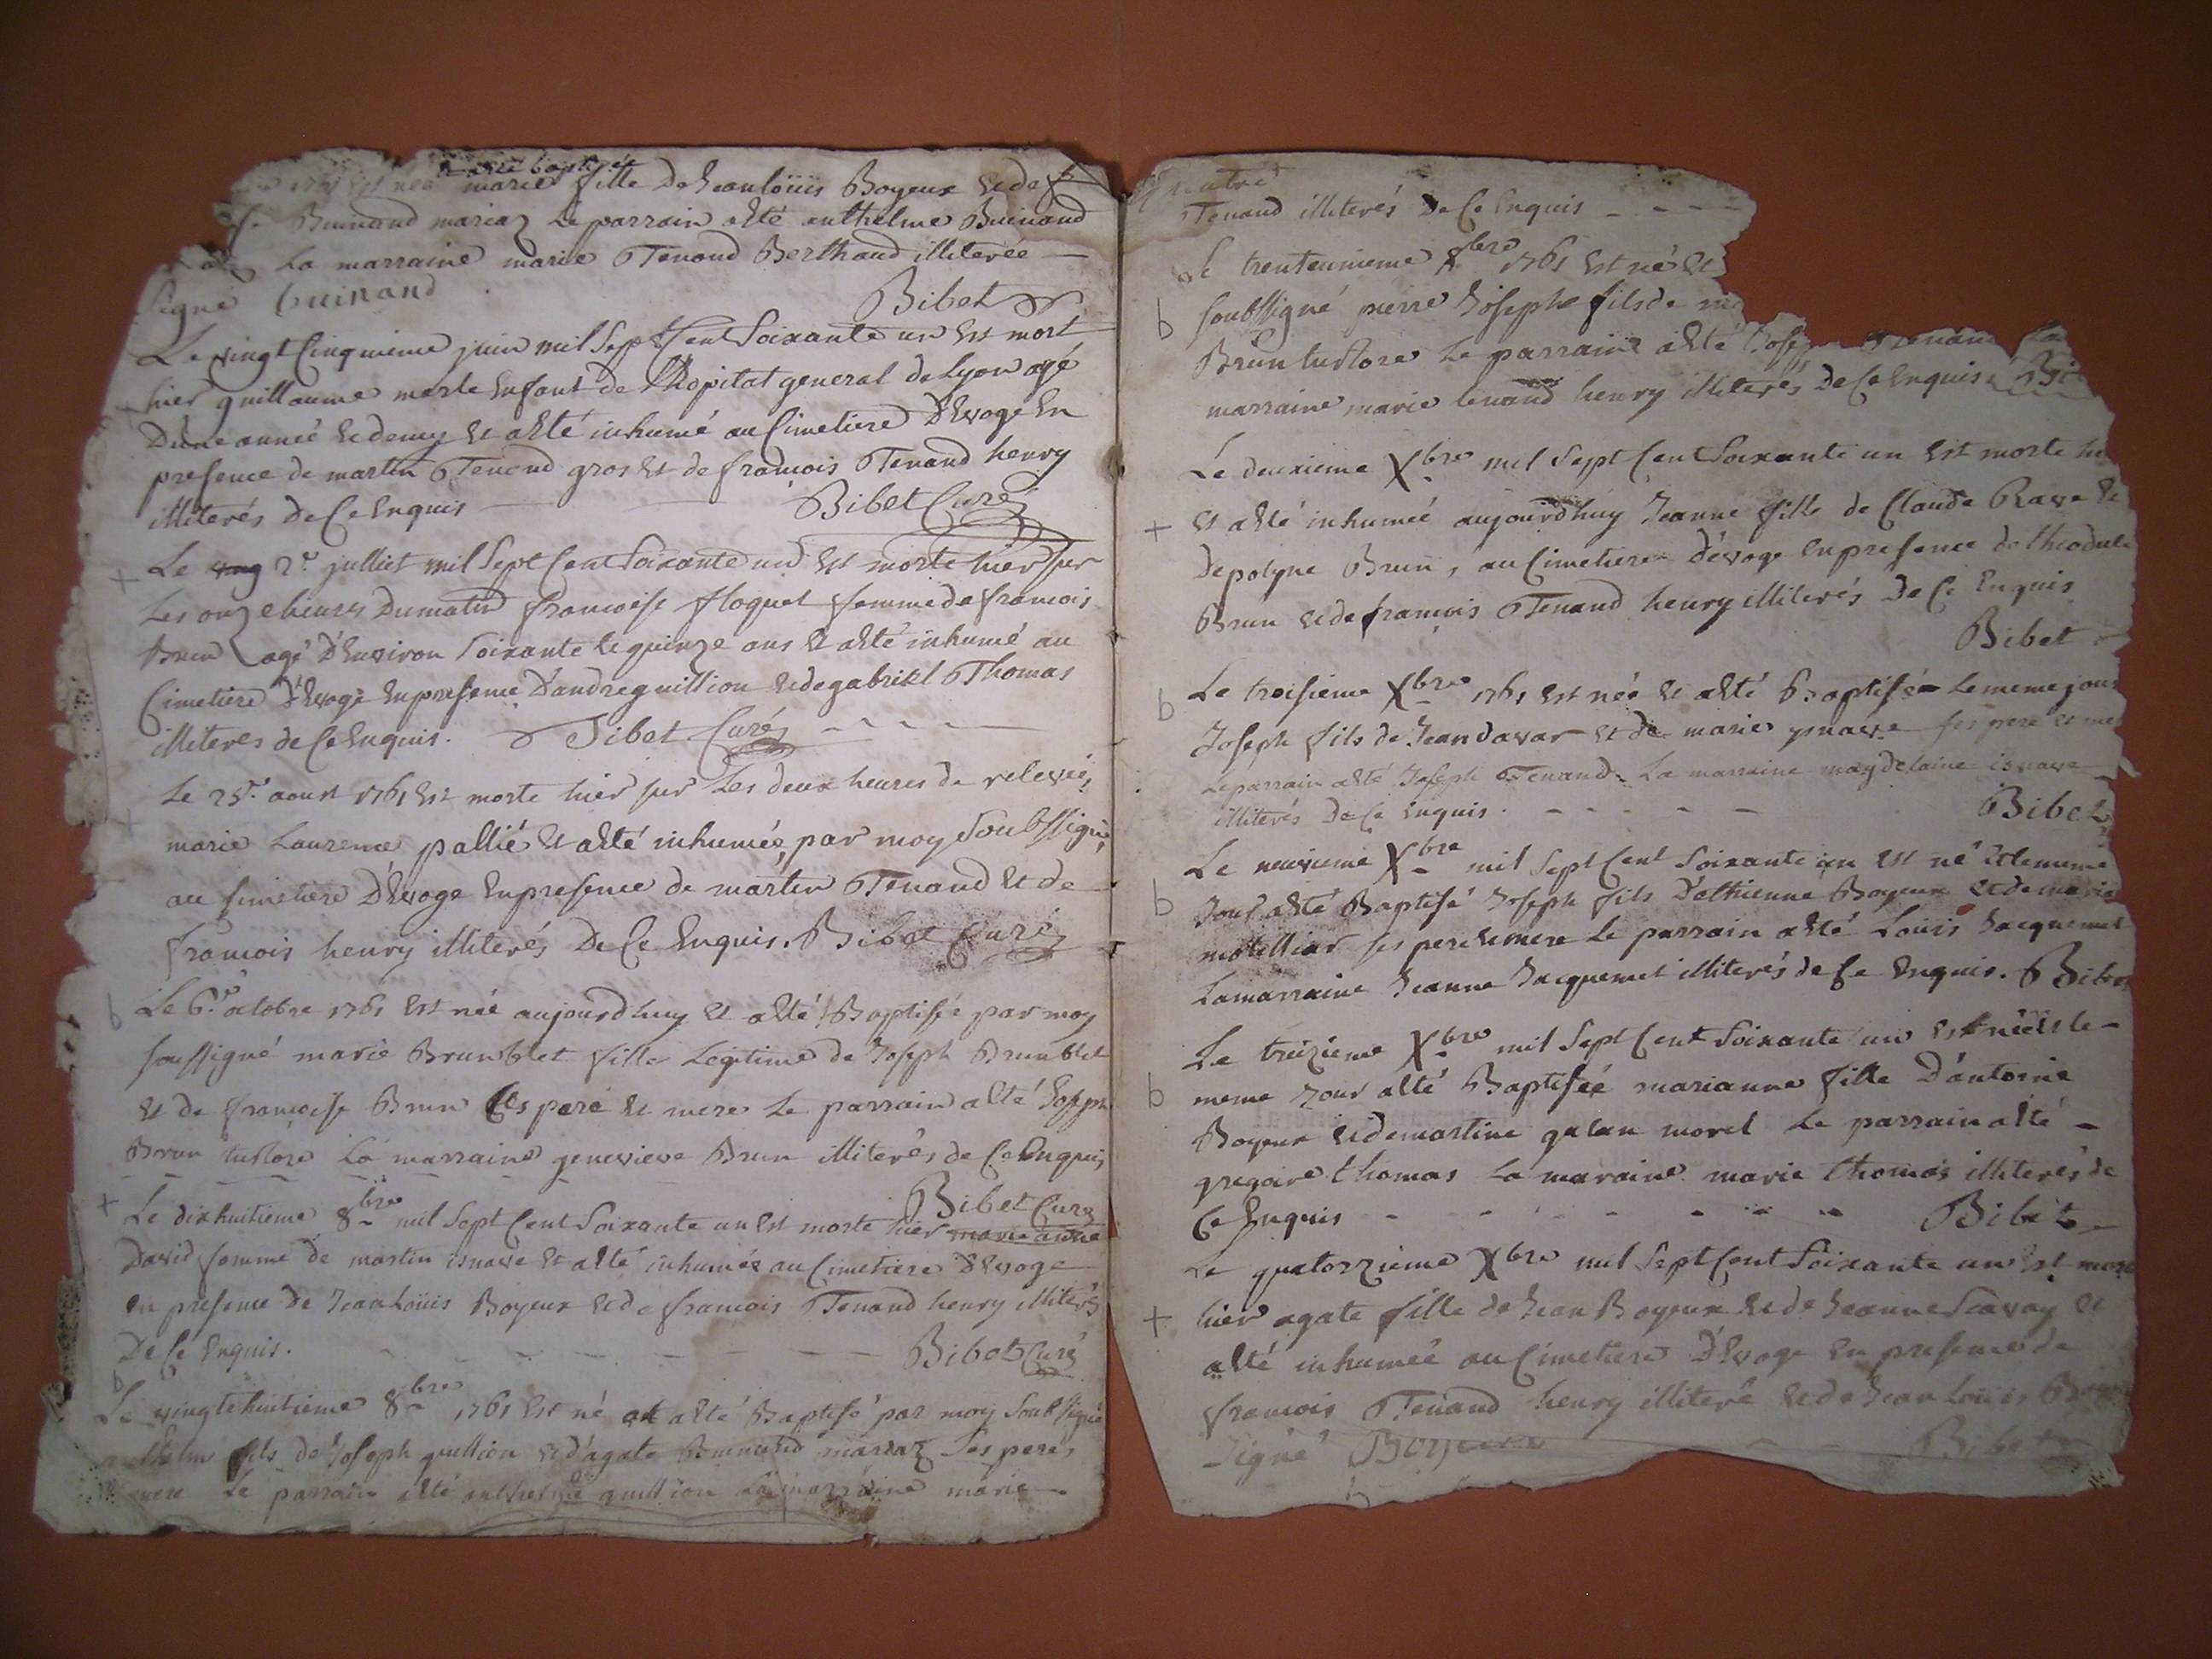 et a été baptisée
1761 est née marie fille De Jean loüis Boyeux et de
Buinand mariaz Le parrain a été anthelme Buinand
La marraine marie Tenand Berthaud illiterée —
signé Buinand Bibet
Le vingt Cinquieme juin mil Sept Cent Soixante un est mort
hier guillaume merle Enfant de l'hopital general de Lyon agé
D'une année et demy et a été inhumé au Cimetiere D'Evoge En
presence de martin Tenand gros et de francois Tenand henry
illiterés de Ce Enquis — Bibet Curé
+ Le 2e juillet mil Sept Cent Soixante un est morte hier sur
Les onze heures Du matin francoise floquet femme de francois
Brun agé D'Environ Soixante et quinze ans et a été inhumé au
Cimetiere D'Evoge En presence D'andre guillion et de gabriel Thomas
illiteres de Ce Enquis. Bibet Curé
Le 25e. aoust 1761 est morte hier sur Les deux heures de relevée,
marie Laurence pallié et a été inhumée, par moy Soubssigné,
au Cimetiere D'Evoge En presence de martin Tenand et de
francois henry illiterés De Ce Enquis. Bibet Curé
b Le 6e octobre 1761 est née aujourdhuy et a été Baptisée par moy
soussigné marie Brunblet fille Legitime de Joseph Brunblet
et de francoise Brun ses pere et mere Le parrain a été Joseph
Brun turlore La marraine genevieve Brun illiterés de Ce Enquis
Bibet Curé
+ Le dixhuitieme 8bre mil Sept Cent Soixante un est morte hier marie anne
David femme de martin isnave et a été inhumée au Cimetiere D'Evoge
en presence de Jean Loüis Boyeux et de francois Tenand henry illiterés
De Ce Enquis. Bibet Curé
b
Le vingt et huitieme 8bre 1761 est né et a été Baptisé par moy Soubssigné
fils de Joseph guillion et d'agate mariaz Ses peres
mere Le parrain a été anthelme guillion La marraine marie
Tenand illiterés De Ce Enquis
Le trenteunieme 8bre 1761 est né et
b soubssigné pierre Joseph fils de
Brun turlore Le parrain a été Jose
marraine marie tenand henry illiterés De Ce Enquis Bi
Le deuxieme Xbre mil Sept Cent Soixante un est morte hi
+ et a été inhumée aujourdhuy Jeanne fille de Claude Rave et
De polyne Brun, au Cimetiere d'Evoge en presence de theodule
Brun et de francois Tenand henry illiterés De Ce Enquis
Bibet
b Le troisieme Xbre 1761 est né et a été Baptisé Le meme jour
Joseph fils de Jean davar et de marie ysnave ses pere et me
Le parrain a été Joseph Tenand La marraine magdelaine isnave
illiterés De Ce Enquis. Bibet
Le neuvieme Xbre mil Sept Cent Soixante un est né et le meme
b Jour a été Baptisé Joseph fils D'ethienne Boyeux et de marie
ses pere et mere Le parrain a été Louis Jacquemet
La marraine Jeanne Jacquemet illiterés de Ce Enquis. Bibet
Le treizieme Xbre mil Sept Cent Soixante un est née et le
b meme Jour a été Baptisée marianne fille D'antoine
Boyeux et de martine galan morel Le parrain a été
gregoire thomas La maraine marie thomas illiterés de
Ce Enquis Bibet
Le quatorzieme Xbre mil Sept Cent Soixante un est mor
+ hier agate fille de Jean Boyeux et de Jeanne Savay et
a été inhumée au Cimetiere D'Evoge En presence de
francois Tenand henry illiteré et de Jean Loüis Boye
Signé Boyeux Bibet